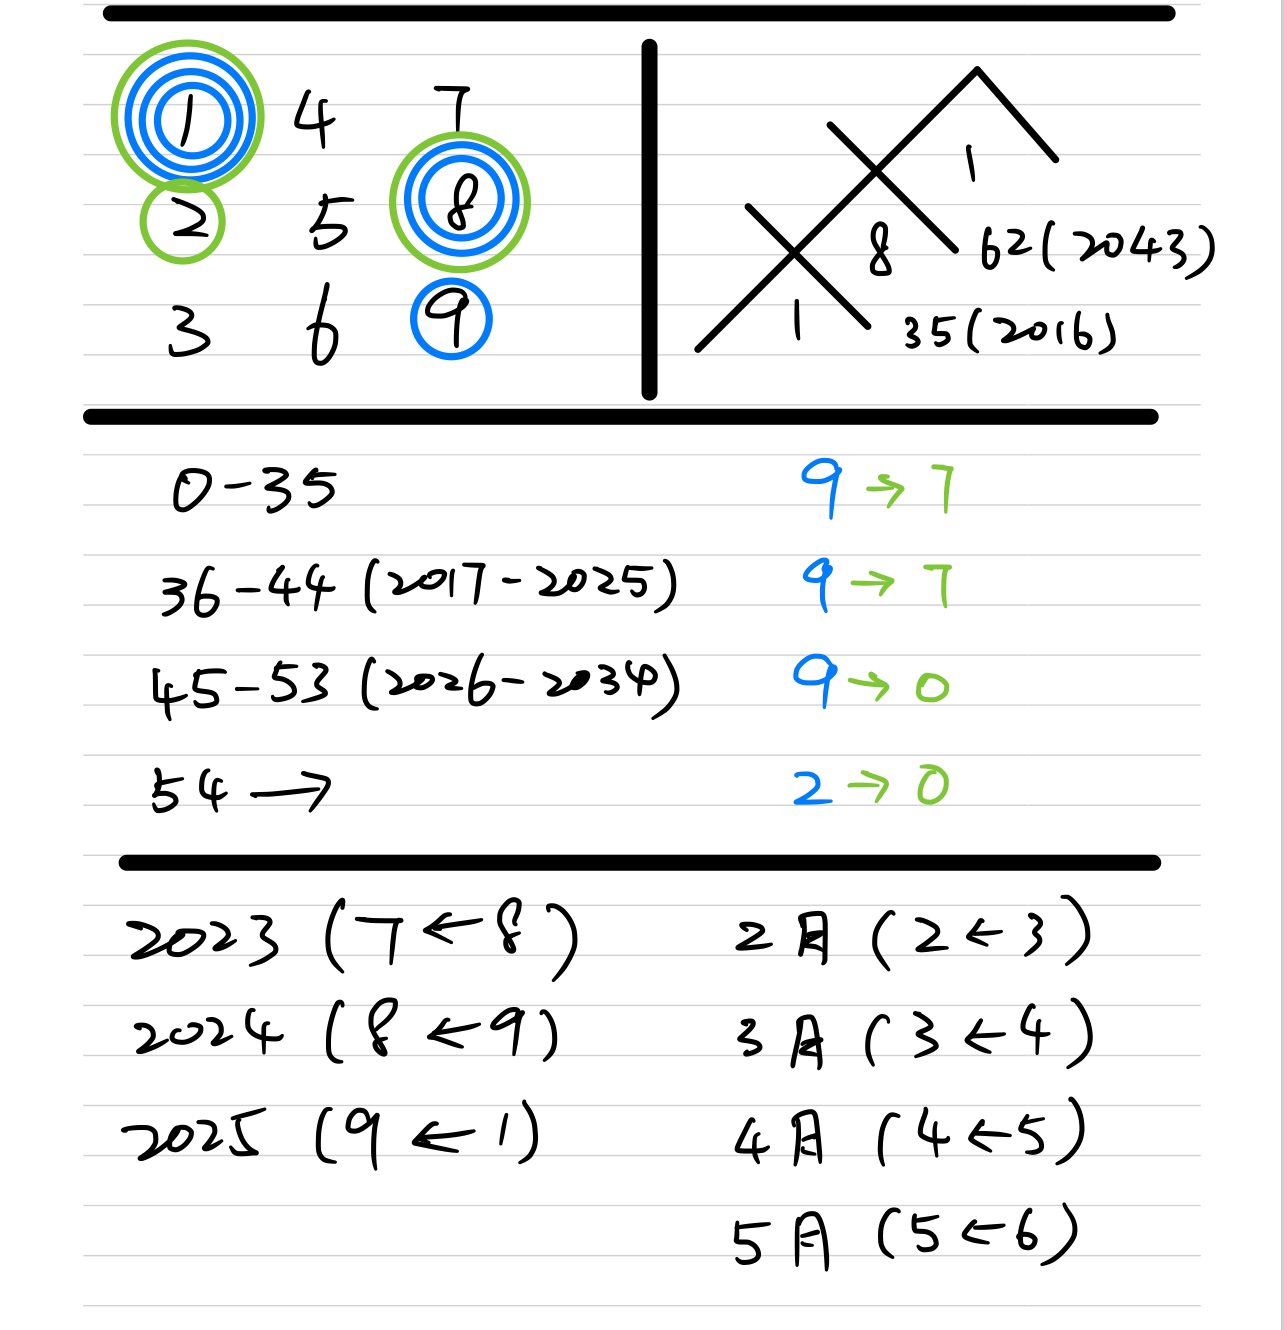 1 4 7
2 5 8
3 6 9
1
8 62(2043)
1 35(2016)
0-35 9→7
36-44 (2017-2025) 9→7
45-53 (2026-2034) 9→0
54→ 2→0
2023 (7←8) 2月 (2←3)
2024 (8←9) 3月 (3←4)
2025 (9←1) 4月 (4←5)
5月 (5←6)